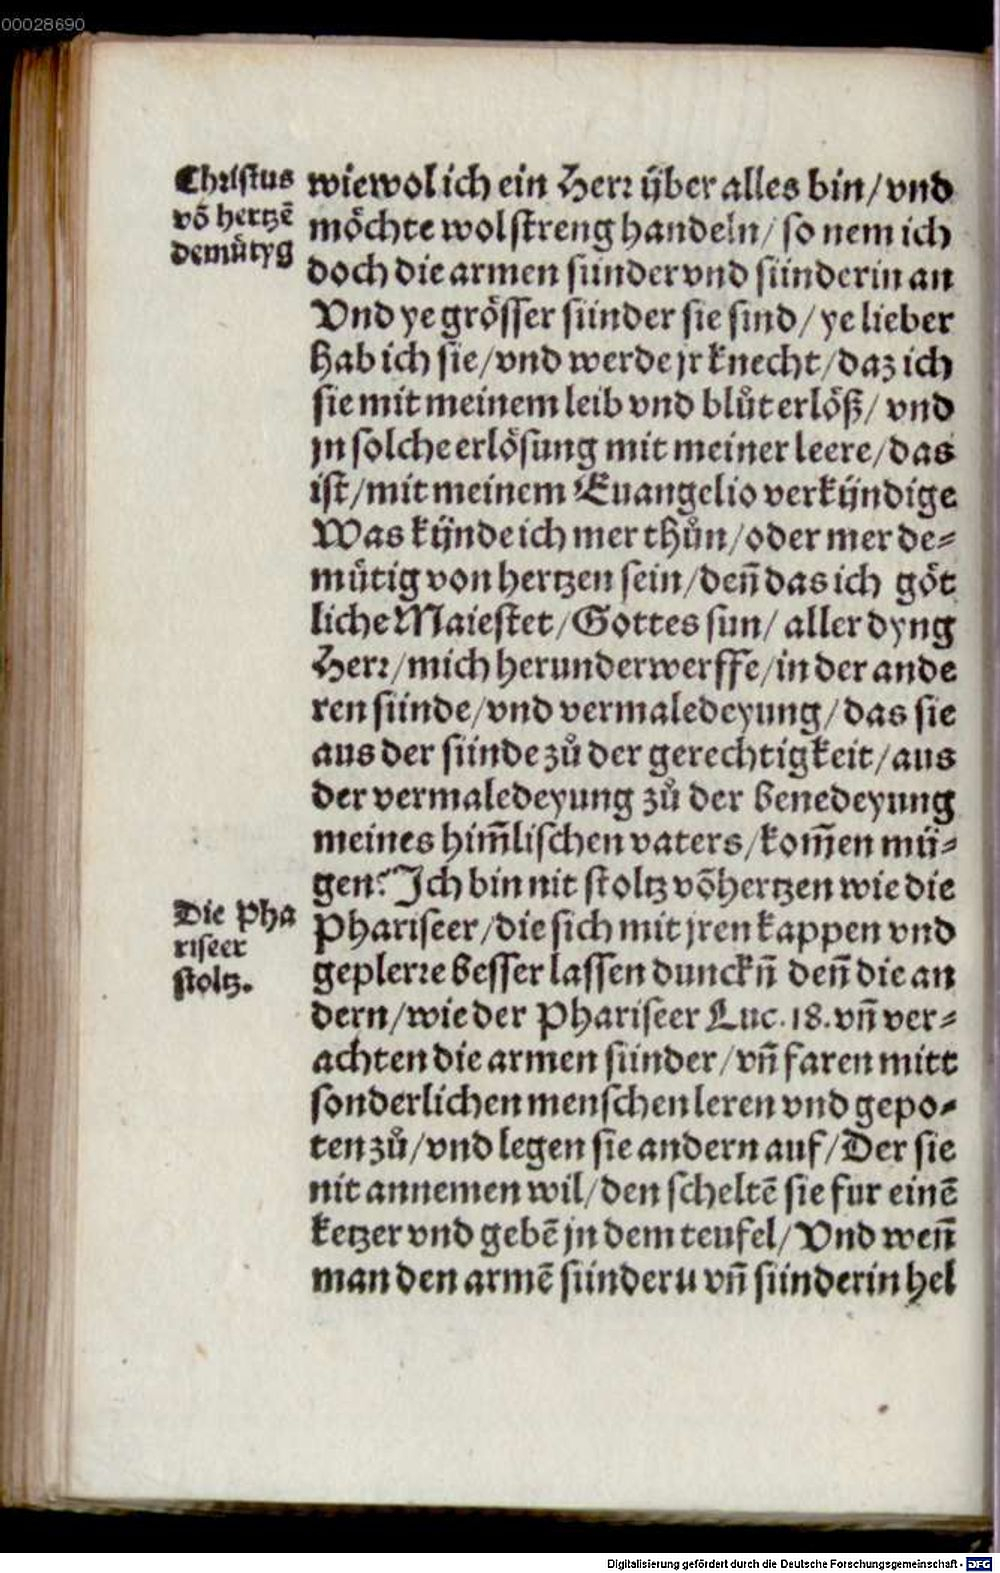 00028690
Christus
võ hertzẽ
demütyg
wiewol ich ein Herr über alles bin/vnd
möchte wol streng handeln/so nem ich
doch die armen sünder vnd sünderin an
Vnd ye grösser sünder sie sind/ye lieber
hab ich sie/vnd werde jr knecht/daz ich
sie mit meinem leib vnd blůt erlöß/vnd
jn solche erlösung mit meiner leere/das
ist/mit meinem Euangelio verkündige
Was künde ich mer thůn/oder mer de-
mütig von hertzen sein/deñ das ich göt
liche Maiestet/Gottes sun/aller dyng
Herr/mich herunderwerffe/in der ande
ren sünde/vnd vermaledeyung/das sie
aus der sünde zů der gerechtigkeit/aus
der vermaledeyung zů der benedeyung
meines him̃lischen vaters/kom̃en mü-
gen? Ich bin nit stoltz võ hertzen wie die
Die Pha
riseer
stoltz.
Phariseer/die sich mit jren kappen vnd
geplerre besser lassen dunckñ deñ die an
dern/wie der Phariseer Luc. 18. vñ ver-
achten die armen sünder/vñ faren mitt
sonderlichen menschen leren vnd gepo-
ten zů/vnd legen sie andern auf/Der sie
nit annemen wil/den scheltẽ sie fur einẽ
ketzer vnd gebẽ jn dem teufel/Vnd weñ
man den armẽ sünderu vñ sünderin hel
Digitalisierung gefördert durch die Deutsche Forschungsgemeinschaft - DFG